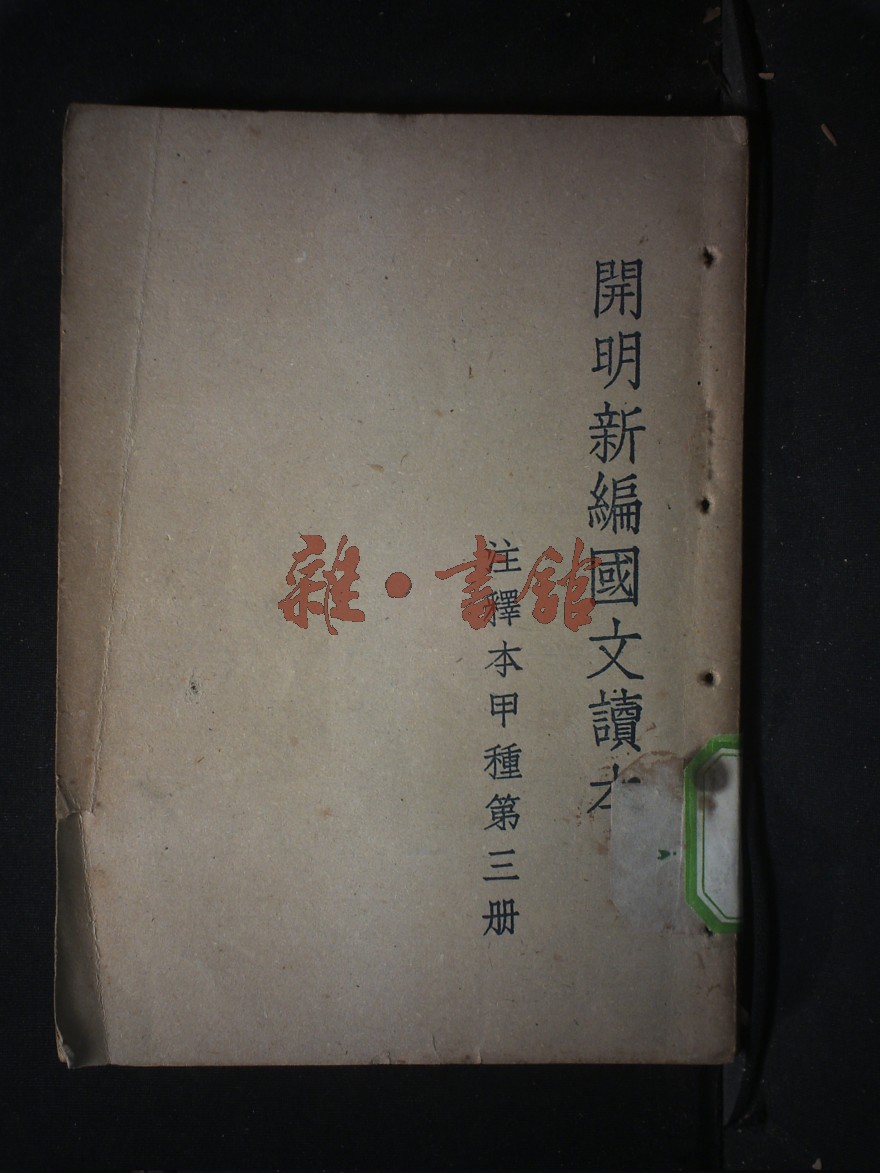 開明新編國文讀本
注釋本甲種第三册
雜·書館